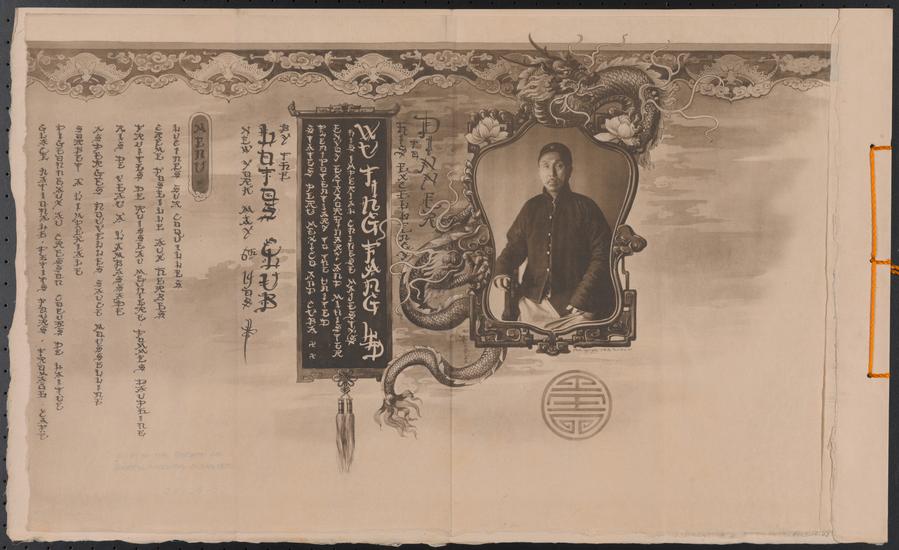 DINNER
TO
HIS EXCELLENCY
WU TING FANG LLD
HIS IMPERIAL CHINESE MAJESTYS
ENVOY EXTRAORDINARY AND MINISTER
PLENIPOTENTIARY TO THE UNITED
STATES PERU MEXICO AND CUBA
BY THE
LOTOS CLUB
NEW YORK MAY 6th 1908
MENU
LUCINES SUR COQUILLES
CREME D'OSEILLE AUX HERBES
TRUITES DE RUISSEAU MEUNIERE POMMES DAUPHINE
RIS DE VEAU A L'AMBASSADE
ASPERGES NOUVELLES SAUCE MOUSSELINE
SORBET A L'IMPERIALE
PIGEONNEAUX AU CRESSON COEURS DE LAITUE
GLACE NATIONALE PETITS FOURS · FROMAGE · CAFE